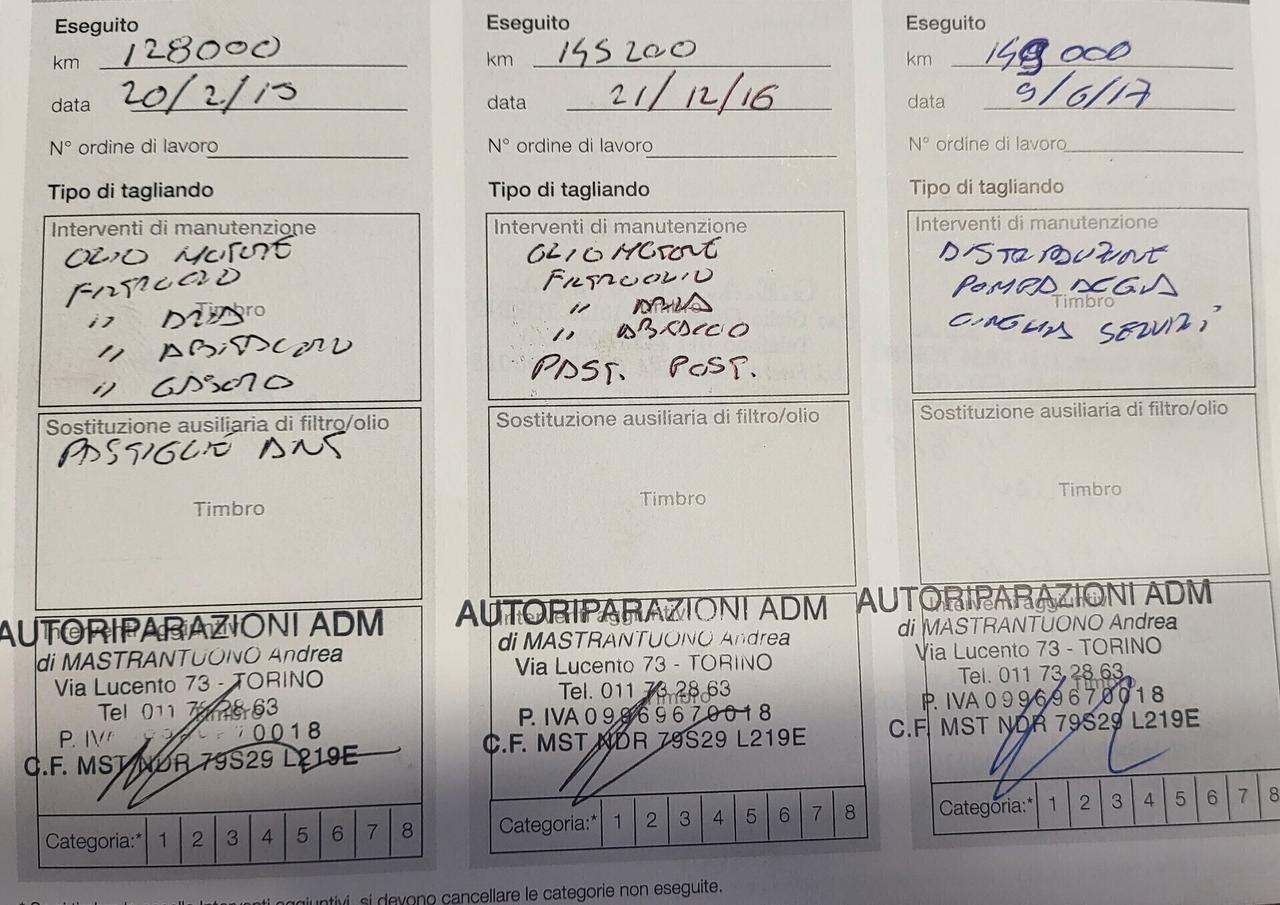 Eseguito
km 128000
data 20/2/15
N° ordine di lavoro
Tipo di tagliando
Interventi di manutenzione
OLIO MOTORE
FILTRO OLIO
" ARIA
Timbro
" ABITACOLO
" GASOLIO
Sostituzione ausiliaria di filtro/olio
PASTIGLIE ANT
Timbro
Interventi aggiuntivi
AUTORIPARAZIONI ADM
di MASTRANTUONO Andrea
Via Lucento 73 - TORINO
Tel 011 73 28 63
Timbro
P. IV 0018
C.F. MST NDR 79S29 L219E
Categoria:* 1 2 3 4 5 6 7 8
Eseguito
km 145200
data 21/12/16
N° ordine di lavoro
Tipo di tagliando
Interventi di manutenzione
OLIO MOTORE
FILTRO OLIO
" ARIA
Timbro
" ABITACOLO
PAST. POST.
Sostituzione ausiliaria di filtro/olio
Timbro
Interventi aggiuntivi
AUTORIPARAZIONI ADM
di MASTRANTUONO Andrea
Via Lucento 73 - TORINO
Tel. 011 73 28 63
Timbro
P. IVA 09969670018
C.F. MST NDR 79S29 L219E
Categoria:* 1 2 3 4 5 6 7 8
Eseguito
km 149 000
data 9/6/17
N° ordine di lavoro
Tipo di tagliando
Interventi di manutenzione
DISTRIBUZIONE
POMPA ACQUA
Timbro
CINGHIA SERVIZI
Sostituzione ausiliaria di filtro/olio
Timbro
Interventi aggiuntivi
AUTORIPARAZIONI ADM
di MASTRANTUONO Andrea
Via Lucento 73 - TORINO
Tel. 011 73 28 63
Timbro
P. IVA 09969670018
C.F. MST NDR 79S29 L219E
Categoria:* 1 2 3 4 5 6 7 8
aggiuntivi, si devono cancellare le categorie non eseguite.